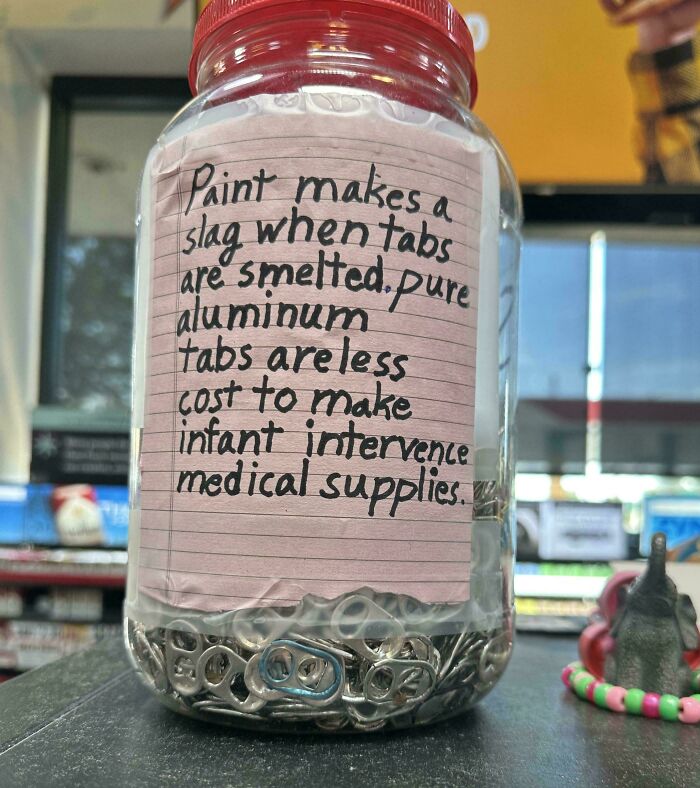 Paint makes a
slag when tabs
are smelted. pure
aluminum
tabs are less
cost to make
infant intervence
medical supplies.